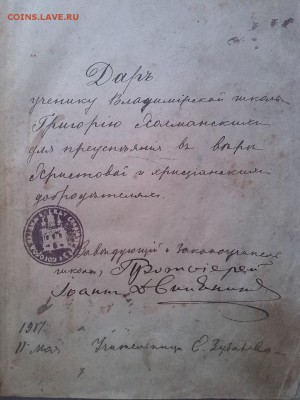 coins.lave.ru
Даръ
ученику Владимірской школы
Григорію Холманскимъ
для преуспѣянія въ вѣрѣ
Христовой и христіанскимъ
добродѣтелямъ.
Завѣдующій и Законоучитель
школы, Протоіерей
Іоаннъ
1917
11 мая Учительница С. Зубанова